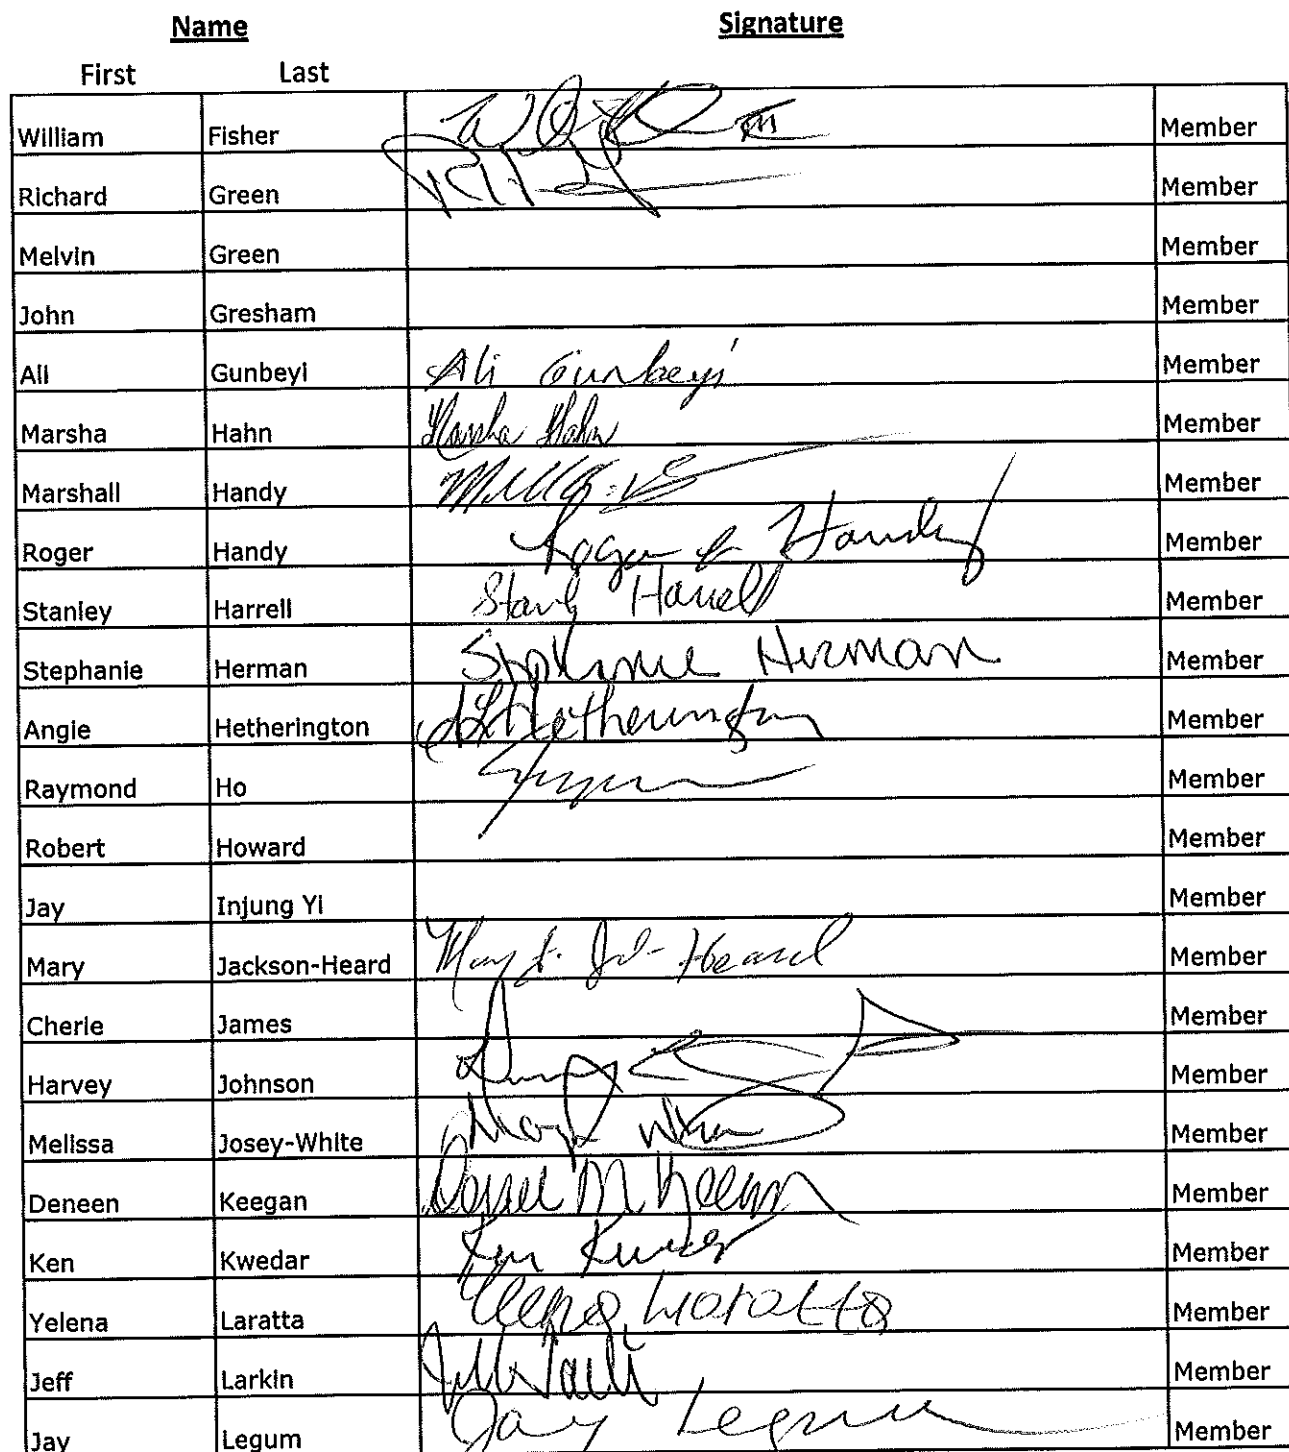 Name Signature
First Last
William Fisher Member
Richard Green Member
Melvin Green Member
John Gresham Member
Ali Gunbeyi Ali Gunbeyi Member
Marsha Hahn Marsha Hahn Member
Marshall Handy Member
Roger Handy Roger Handy Member
Stanley Harrell Stanly Harrell Member
Stephanie Herman Stephanie Herman Member
Angie Hetherington Hetherington Member
Raymond Ho Member
Robert Howard Member
Jay Injung Yi Member
Mary Jackson-Heard Mary Heard Member
Cherie James Member
Harvey Johnson Member
Melissa Josey-White Member
Deneen Keegan Deneen M Keegan Member
Ken Kwedar Ken Kwedar Member
Yelena Laratta Yelena Laratta Member
Jeff Larkin Member
Jay Legum Jay Legum Member